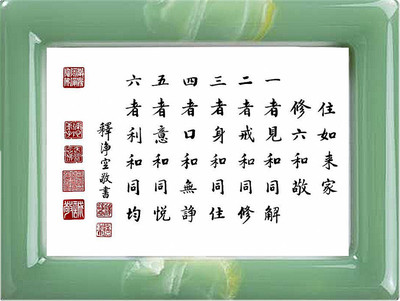 住如来家
修六和敬
一者見和同解
二者戒和同修
三者身和同住
四者口和無諍
五者意和同悅
六者利和同均
釋淨空敬書